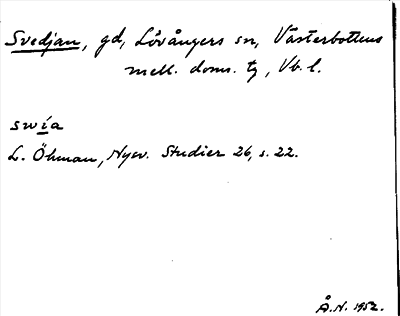 Svedjan, gd, Lövångers sn, Västerbottens
mell. doms. tg, Vb. l.
swía
L. Öhman, Nysv. Studier 26, s. 22.
Å. N. 1952.